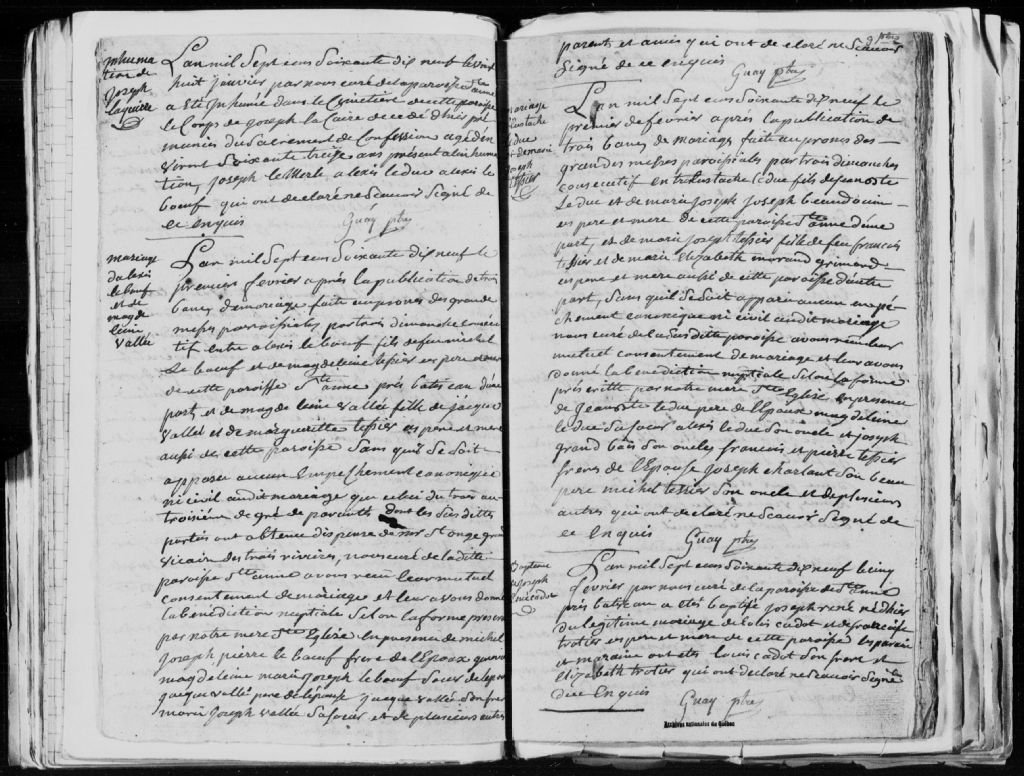 inhuma
tion de
Joseph
laquerre
Lan mil Sept cens Soixante dix neuf le vint
huit Janvier par nous curé de la paroisse Ste anne
a Eté Inhumé dans le Cimetiere de cette paroisse
le Corps de Joseph la Caire decedé d'hier pré
munies du Sacrement de Confession agé den
viront Soixante treise ans présent a linhuma
tion, Joseph le Merle alexis le duc alexis le
bœuf qui ont de claré ne Scauoir Signé de
ce Enquis
Guay ptre
mariage
dalexis
le bœuf
et de
magde
leine
vallée
Lan mil Sept cens Soixante dix neuf le
premiers fevrier après la publication de trois
bancs de mariage faite au prones des grande
messes parroissiales par trois dimanche Conséc
tif entre alexis le bœuf fils de feu michel
Le bœuf et de magdeleine tessier ses pere et mere
de cette paroisse Ste anne près batis can d'une
part, et de magdeleine vallée fille de jacque
vallée et de marguerite tessier ses pere et mere
aussi des cette paroisse Sans qu'il Se Soit
apparu aucun Empechement canonique
ni civil audit mariage que celui du trois au
troisiéme de gré de parenté dont les dits dittes
parties ont obtenu dispense de mr St onge grand
vicaire des trois rivieres, nous curé de la ditte
paroisse Ste anne avons recu leur mutuel
consentement de mariage et leur avons donné
la bénédiction nuptiale Selon la forme prescritte
par notre mere Ste Eglise En presence de michel
Joseph pierre le bœuf frere de l'Epoux
magdeleine marie Joseph le bœuf Sœur de lepoux
jacque vallé pere de lépouse Jacque vallée Son frere
marie Joseph vallée Sa sœur et de plusieurs autres
parents et amies qui ont de claré ne Scauoir
Signé de ce Enquis
Guay ptre
mariage
Eustache
le duc
et de marie
Joseph
tessier
Lan mil Sept cens Soixante dix neuf le
premier de fevrier après la publication de
trois bancs de mariage faite au prones des
grandes messes paroissiales par trois dimanches
consecutif Entre Eustache le duc fils de Jean Bte
Le duc et de marie Joseph
ses pere et mere de cette paroisse Ste anne d'une
part, et de marie Joseph tessier fille de feu francois
tessier et de marie Elizabeth morand grimard
ses pere et mere aussi de cette paroisse d'autre
part, Sans quil Se Soit apparu aucun enpé
chement canonique ni civil audit mariage
nous curé de la Sus ditte paroisse avons recu leur
mutuel consentement de mariage et leur avons
donné la bénédiction nuptiale Selon la forme
prés critte par notre mere Ste Eglise En presence
de Jean Bte le duc pere de l'Epoux magdeleine
le duc Sa sœur alexis le duc Son oncle et joseph
grand bois Son oncle francois et pierre tessier
freres de l'Epouse Joseph charlant Son beau
pere michel tessier Son oncle et de plusieurs
autres qui ont declaré ne Scavoir Signé de
ce Enquis
Guay ptre
Bapteme
de joseph
rené cadot
Lan mil Sept cens Soixante dix neuf le cinq
fevrier par nous curé de la paroisse de Ste Anne
près batiscan a etés baptisé joseph rené né d'hier
du legitime mariage de louis cadot et de francoise
trotier ses pere et mere de cette paroisse les parain
et maraine ont etés louis cadot Son frere et
Elizabeth trotier qui ont declaré ne Scauoir Signé
de ce Enquis
Guay ptre
Archives nationales du Québec